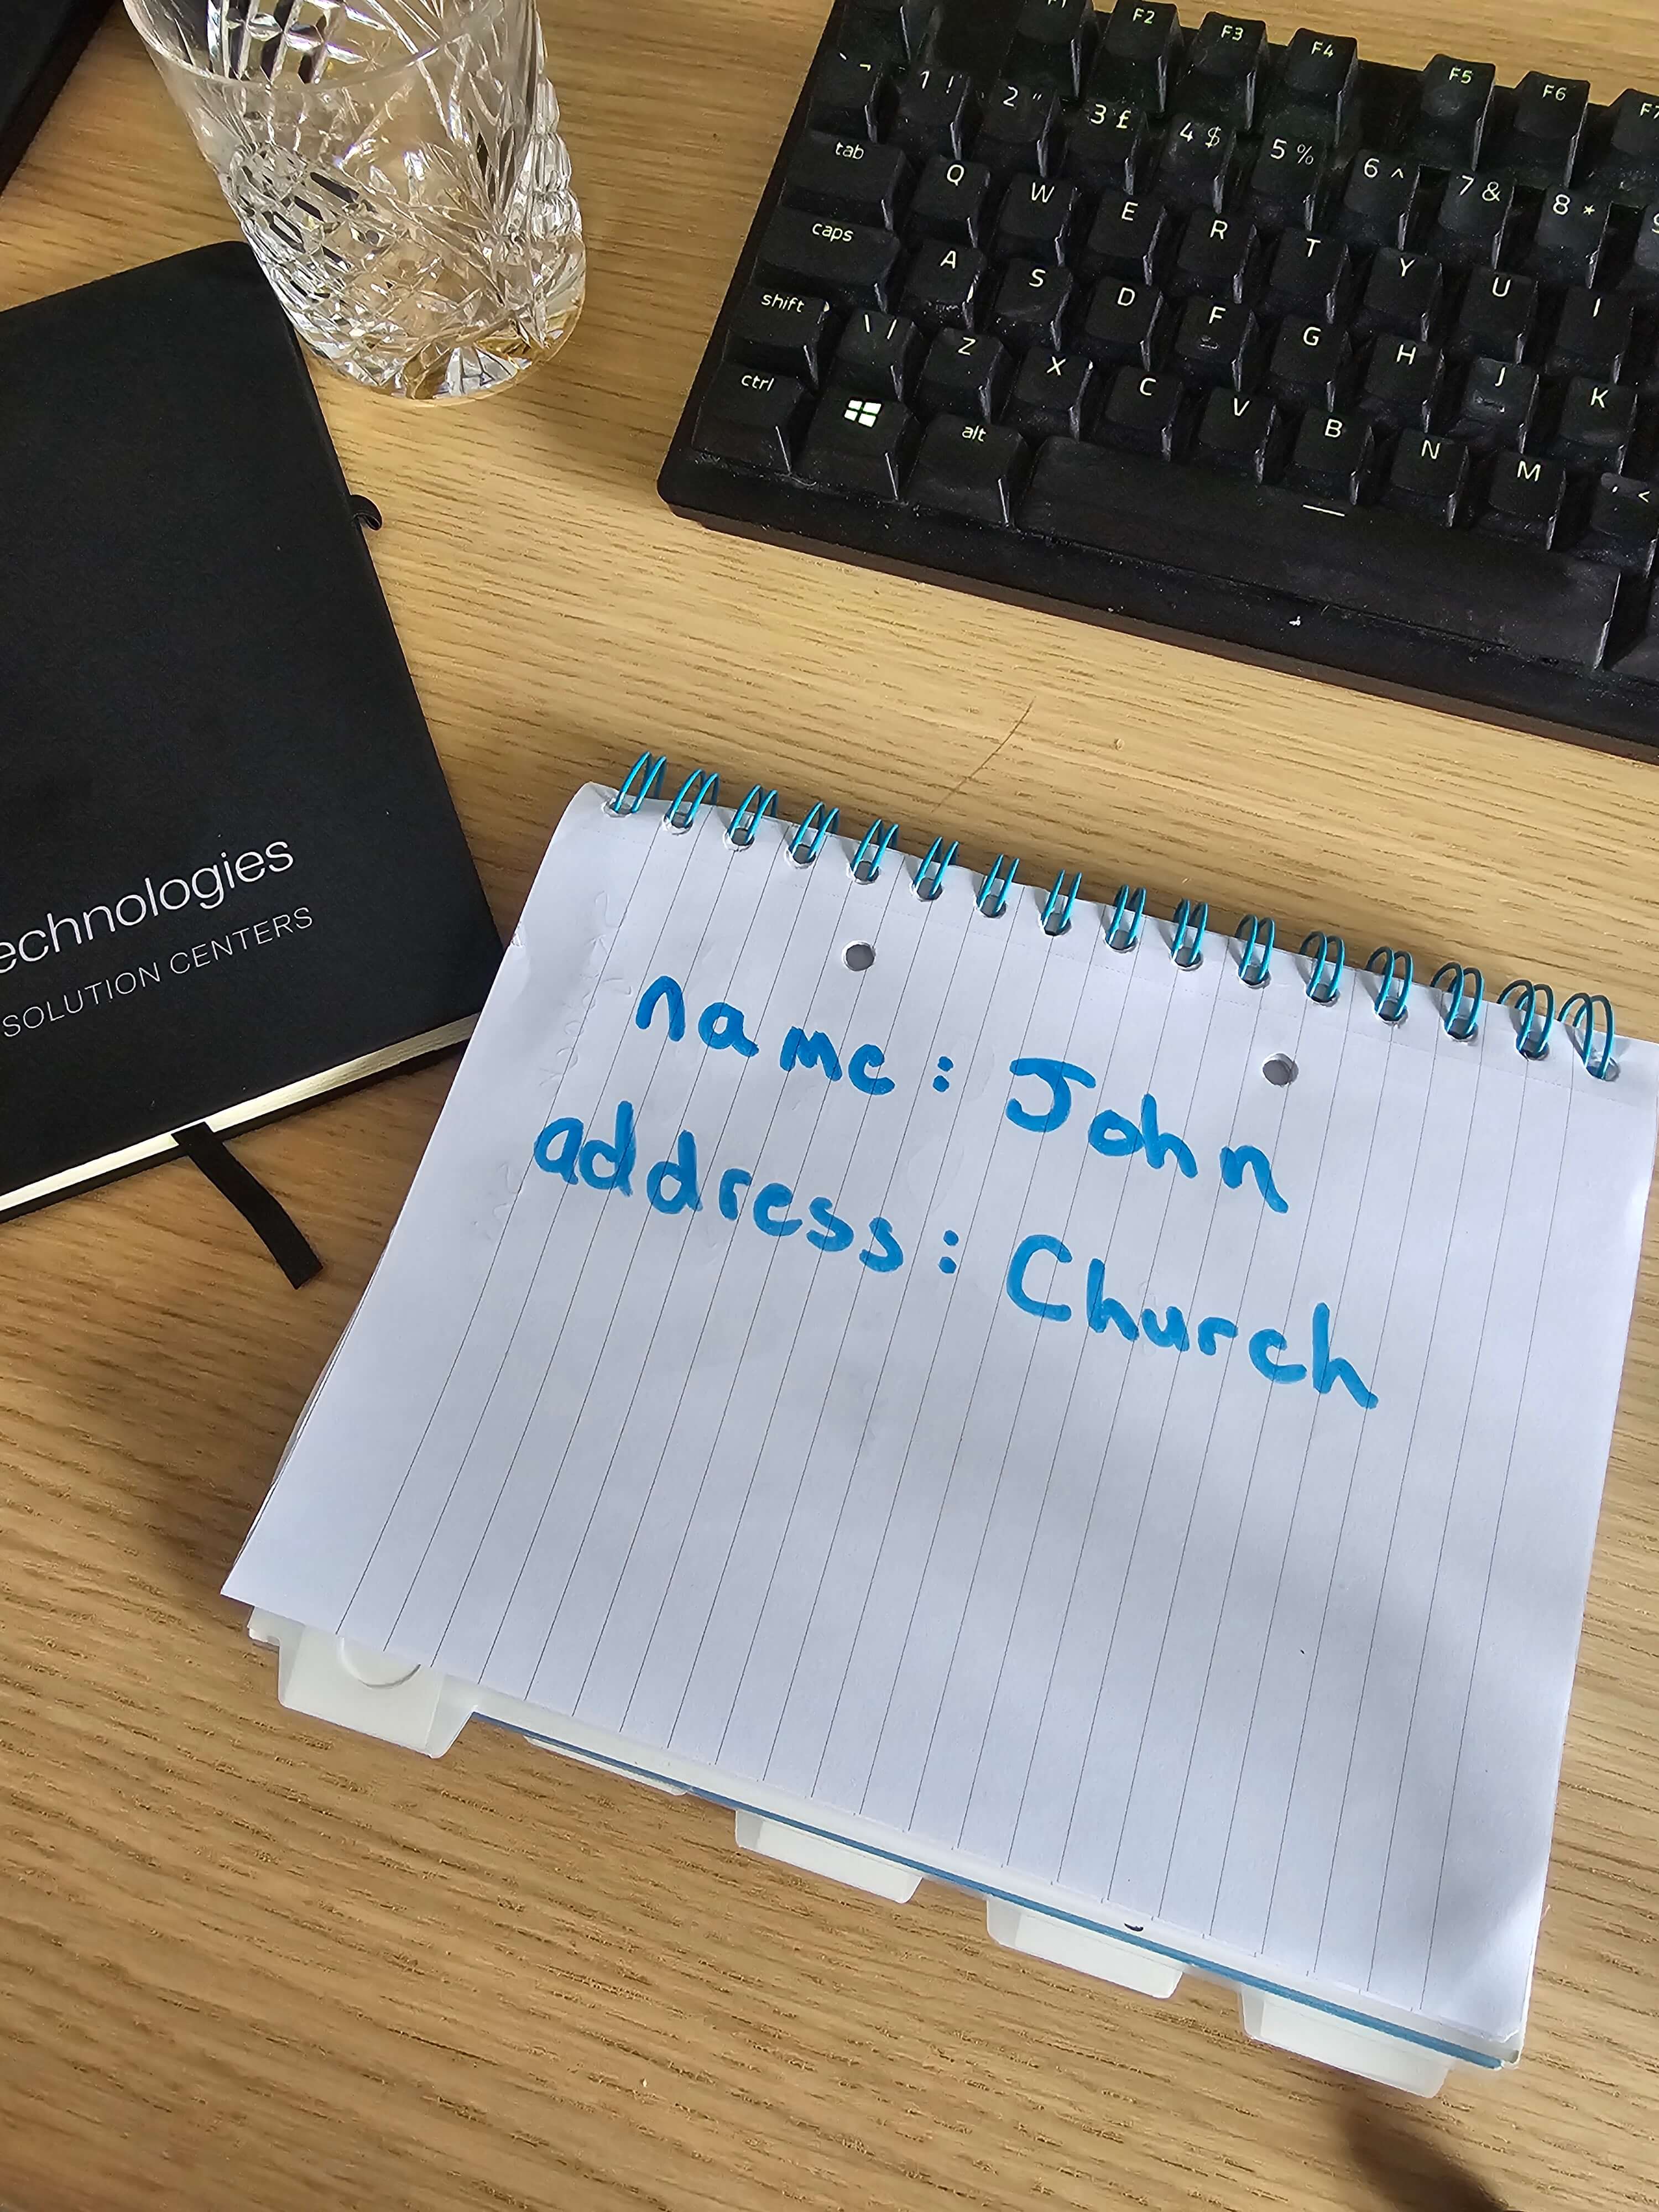 F1 F2 F3 F4 F5 F6 F7
` ¬ 1 ! 2 " 3 £ 4 $ 5 % 6 ^ 7 & 8 * 9
tab Q W E R T Y U I
caps A S D F G H J K
shift \ | Z X C V B N M , <
ctrl alt
echnologies
SOLUTION CENTERS
name: John
address: Church